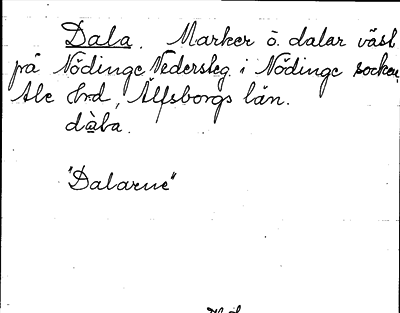 Dala. Marker o. dalar väst
på Nödinge Nedersteg i Nödinge socken,
Ale Hrd, Älfsborgs län.
dàla.
"Dalarne"